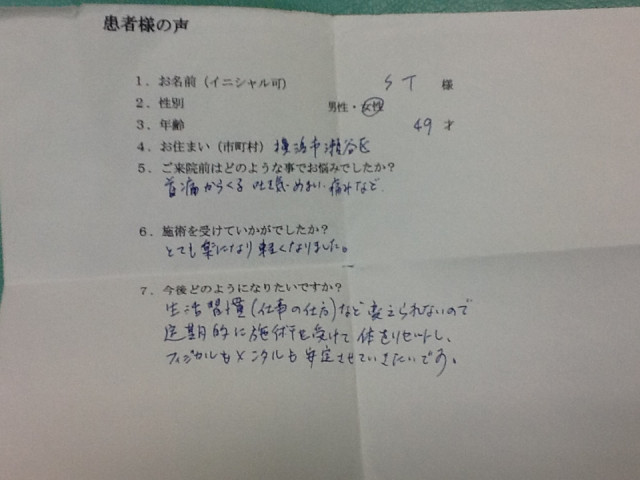 患者様の声
1．お名前（イニシャル可） S T 様
2．性別 男性・女性
3．年齢 49 才
4．お住まい（市町村） 横浜市瀬谷区
5．ご来院前はどのような事でお悩みでしたか？
首痛からくる 吐き気・めまい・痛みなど
6．施術を受けていかがでしたか？
とても楽になり軽くなりました。
7．今後どのようになりたいですか？
生活習慣（仕事の仕方）など変えられないので
定期的に施術を受けて 体をリセットし、
フィジカルもメンタルも安定させていきたいです。